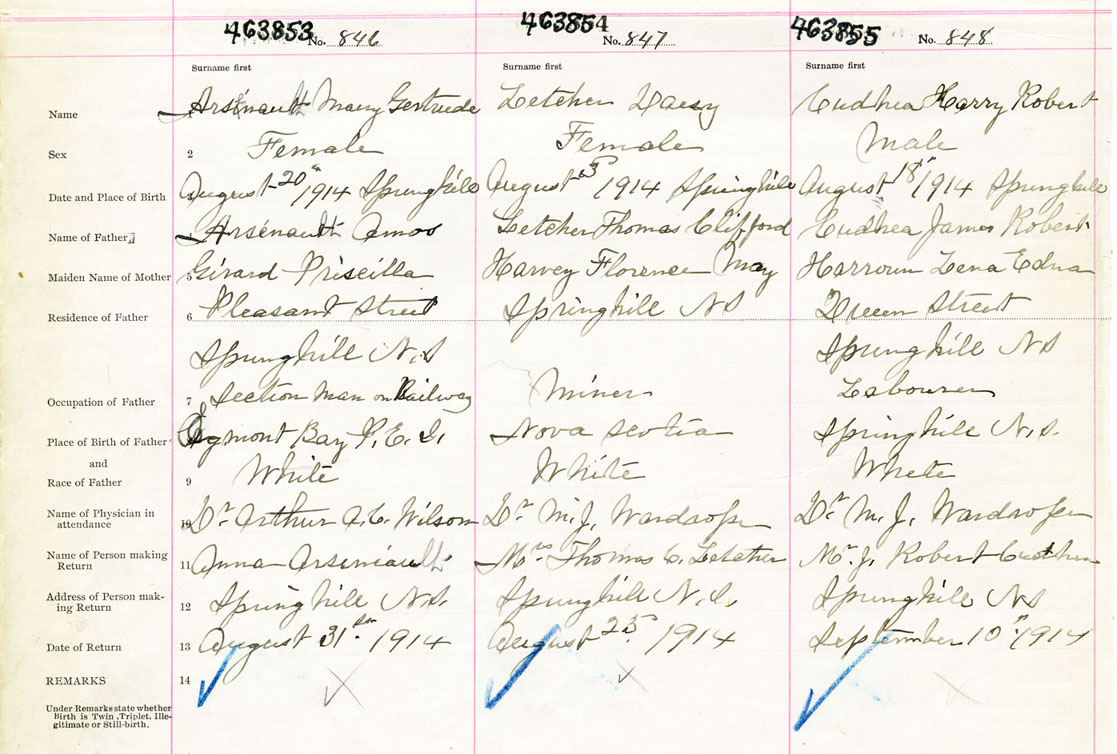 463853 No. 846 463854 No. 847 463855 No. 848
Surname first Surname first Surname first
Name Arsenault Mary Gertrude Letcher Daisy Cudhea Harry Robert
Sex 2 Female Female Male
Date and Place of Birth August 20th 1914 Springhill August 1914 Springhill August 18th 1914 Springhill
Name of Father Arsénault Amos Letcher Thomas Clifford Cudhea James Robert
Maiden Name of Mother 5 Girard Priscilla Harvey Florence May Harroun Lena Edna
Residence of Father 6 Pleasant Street Springhill NS Queen Street
Springhill N.S Springhill NS
Occupation of Father 7 Section Man on Railway Miner Labourer
Place of Birth of Father Egmont Bay P. E. I. Nova Scotia Springhill N.S.
and
Race of Father 9 White White White
Name of Physician in attendance 10 Dr Arthur A. C. Wilson Dr M. J. Wardrope Dr M. J. Wardrope
Name of Person making Return 11 Anna Arseniault Mrs Thomas C. Letcher Mr. J. Robert
Address of Person making Return 12 Springhill N.S. Springhill N.S. Springhill NS
Date of Return 13 August 31st 1914 August 1914 September 10th 1914
REMARKS 14
Under Remarks state whether
Birth is Twin, Triplet, Ille-
gitimate or Still-birth.